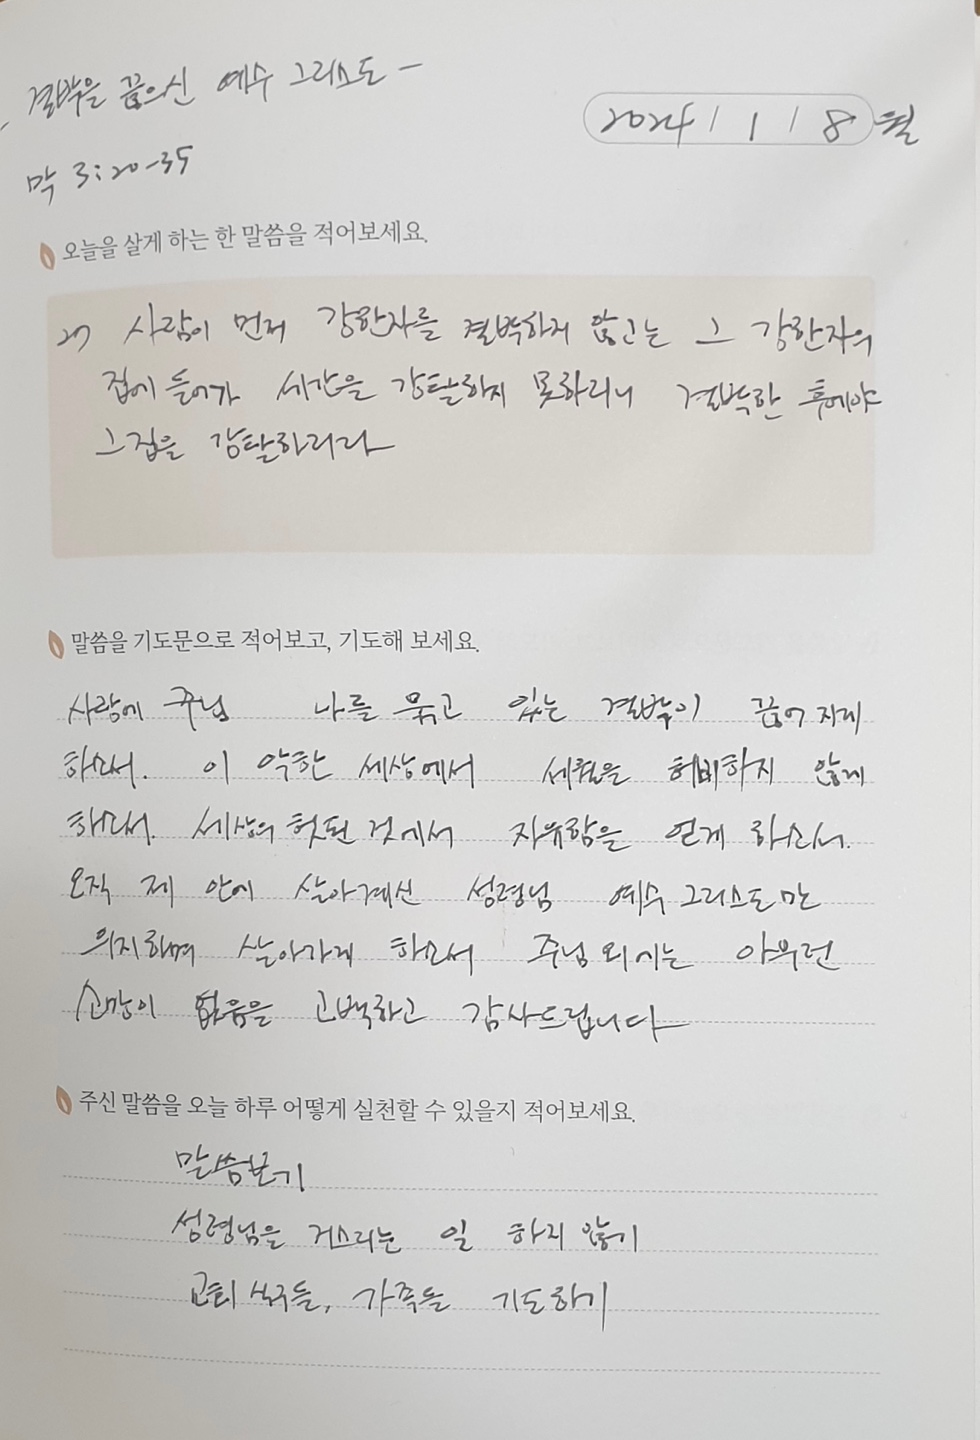 결박을 끊으신 예수 그리스도 -
2024 / 1 / 8 월
막 3:20-35
오늘을 살게 하는 한 말씀을 적어보세요.
27 사람이 먼저 강한자를 결박하지 않고는 그 강한자의
집에 들어가 세간을 강탈하지 못하리니 결박한 후에야
그 집을 강탈하리라
말씀을 기도문으로 적어보고, 기도해 보세요.
사랑에 주님 나를 묶고 있는 결박이 끊어 지게
하소서. 이 악한 세상에서 세월을 허비하지 않게
하소서. 세상의 헛된 것에서 자유함을 얻게 하소서.
오직 제 안에 살아계신 성령님 예수 그리스도만
의지하며 살아가게 하소서 주님 외에는 아무런
소망이 없음을 고백하고 감사드립니다
주신 말씀을 오늘 하루 어떻게 실천할 수 있을지 적어보세요.
말씀보기
성령님을 거스리는 일 하지 않기
교회 식구들, 가족들 기도하기